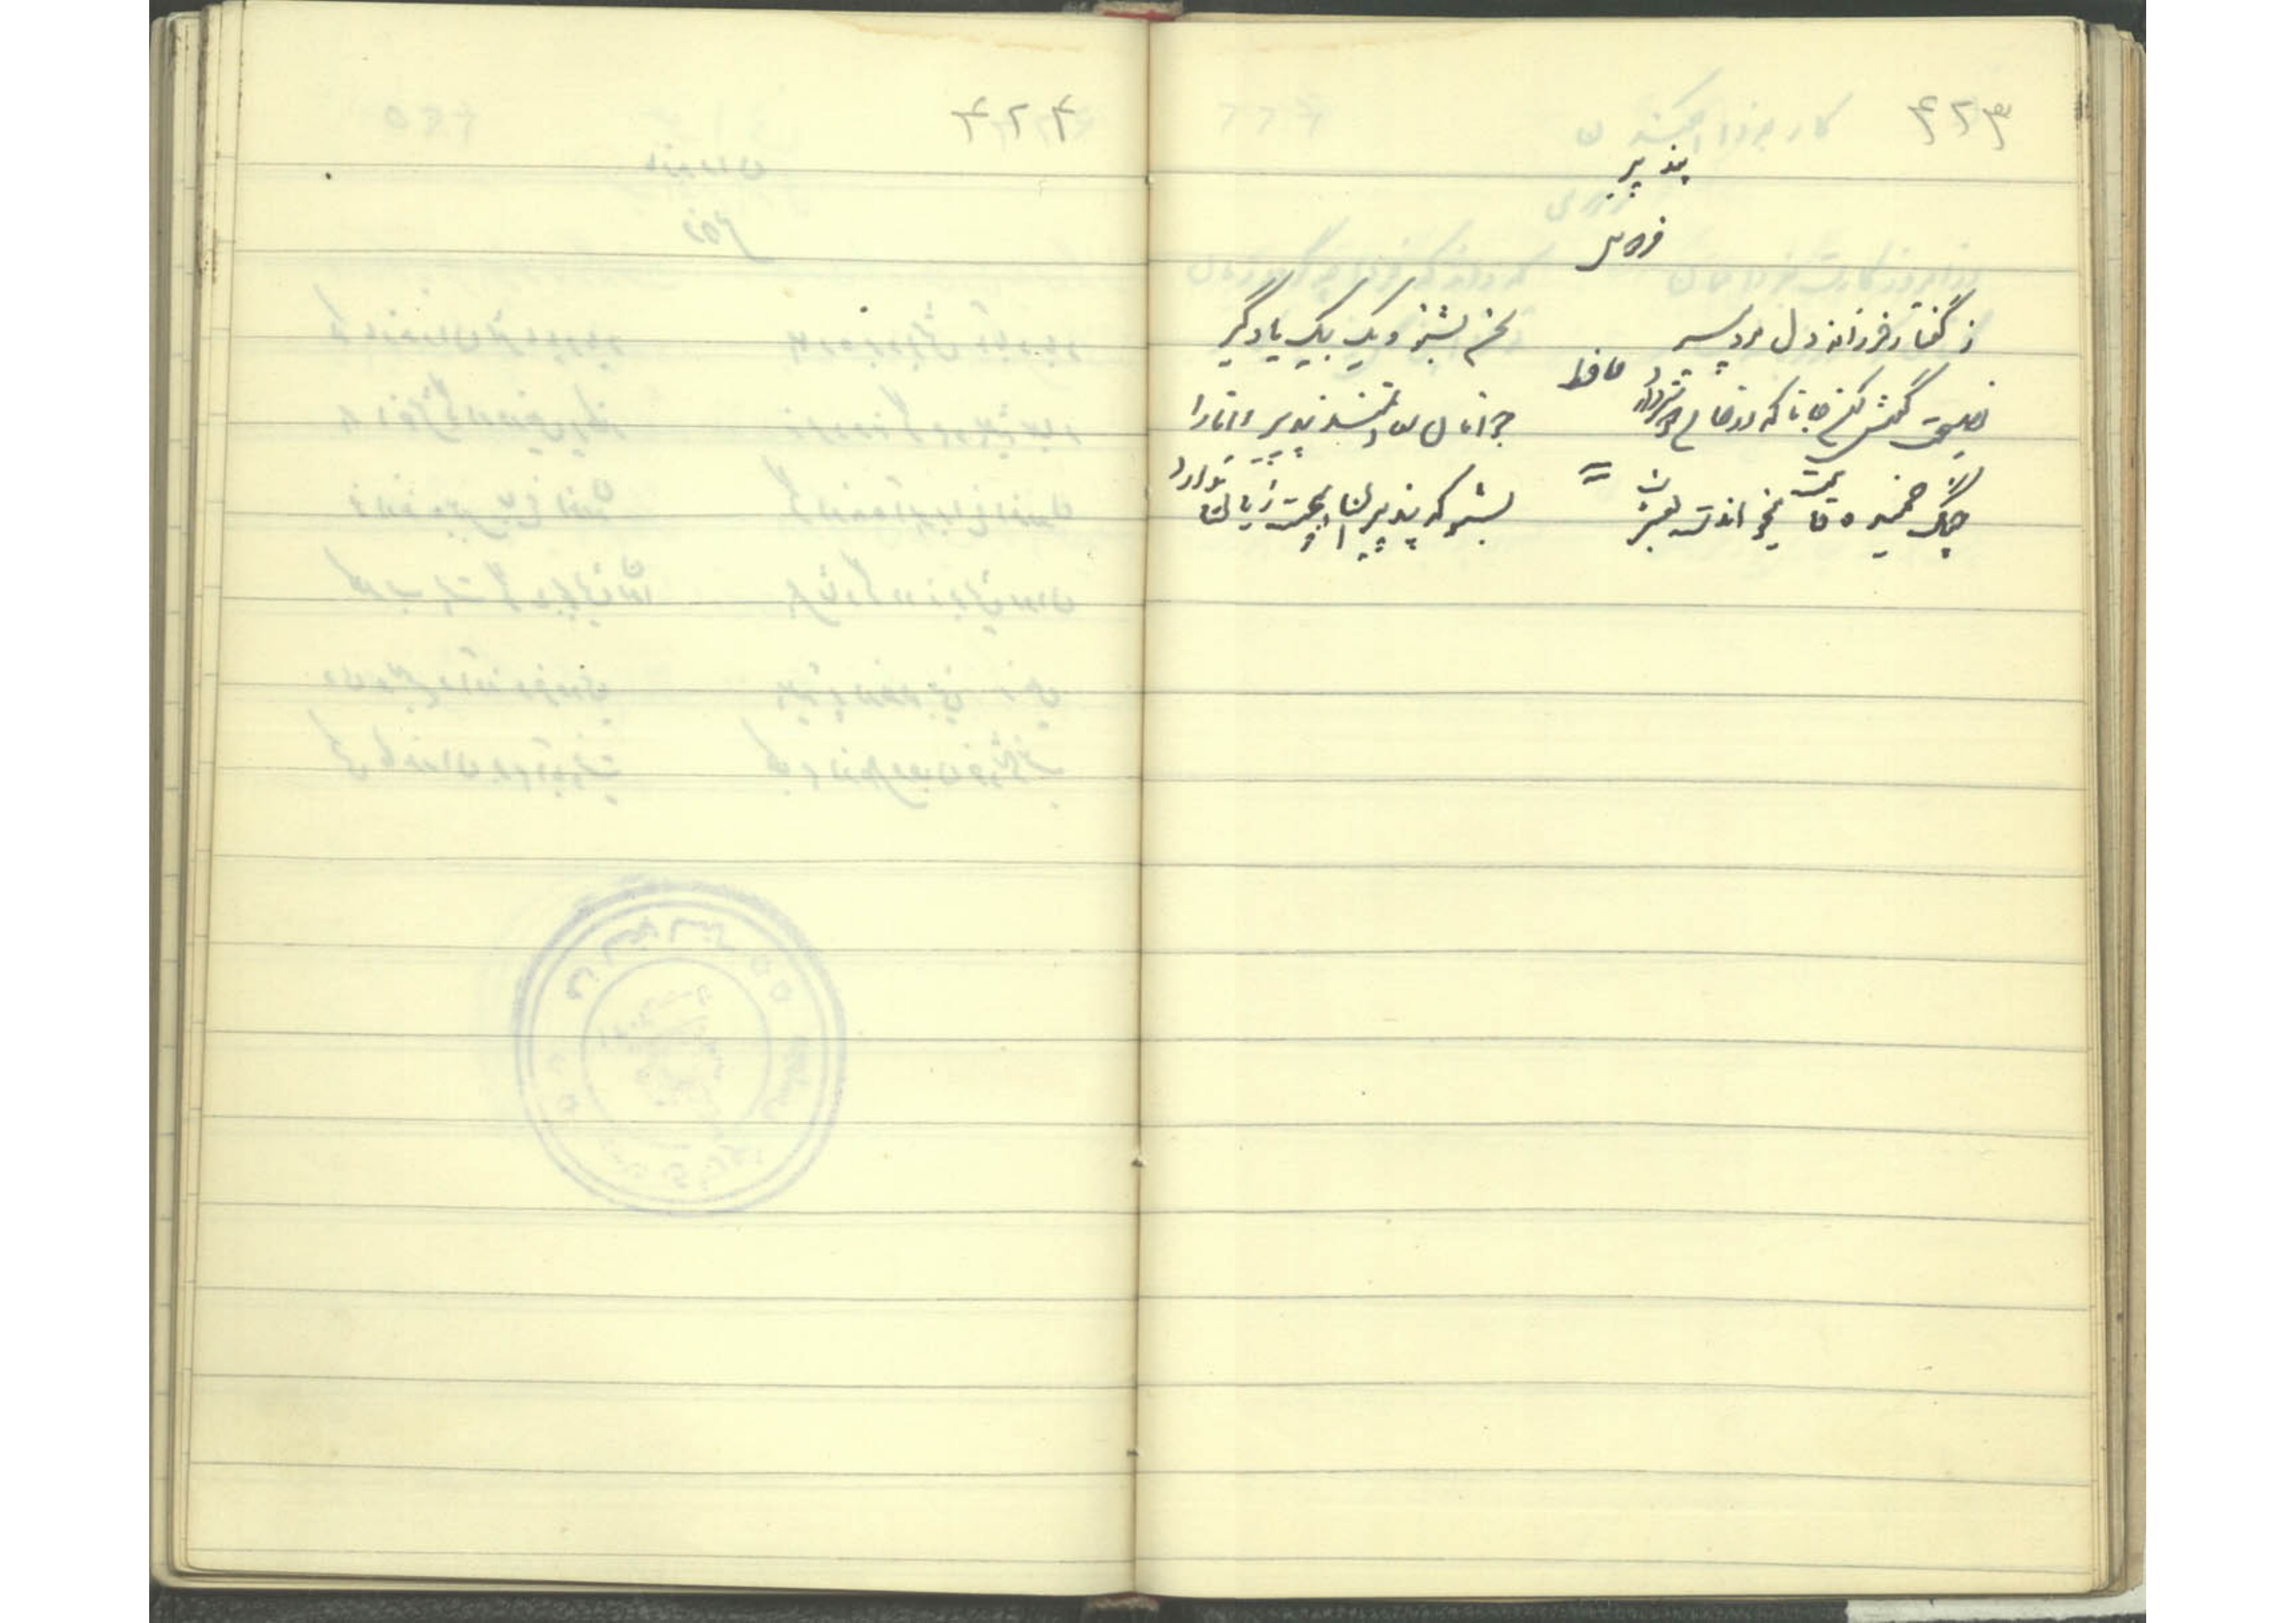 ۴۲۳
پند پیر
فردوسی
ز گفتار فرزانه دل مرد پیر
سخن بشنو و یک بیک یادگیر
نصیحت گوش کن جانا که از جان دوستتر دارند
حافظ
جوانان سعادتمند پند پیر دانا را
چنگ خمیده قامت میخواندت بعشرت
=
بشنو که پند پیران هیچت زیان ندارد
۴۲۴